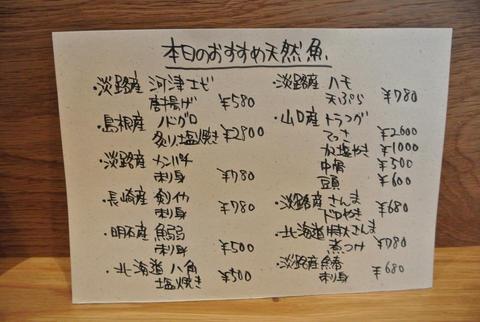 本日のおすすめ天然魚
・淡路産 河津エビ
唐揚げ ¥580
・島根産 ノドグロ
炙り塩焼き ¥2800
・淡路産 メンパチ
刺身 ¥780
・長崎産 剣イカ
刺身 ¥780
・明石産
刺身 ¥500
・北海道 八角
塩焼き ¥500
・淡路産 ハモ
天ぷら ¥780
・山口産 トラフグ
てっさ ¥2600
塩やき ¥1000
中骨 ¥500
豆頭 ¥600
・淡路産 さんま
¥680
・北海道 特大さんま
煮つけ ¥780
・淡路産
刺身 ¥680